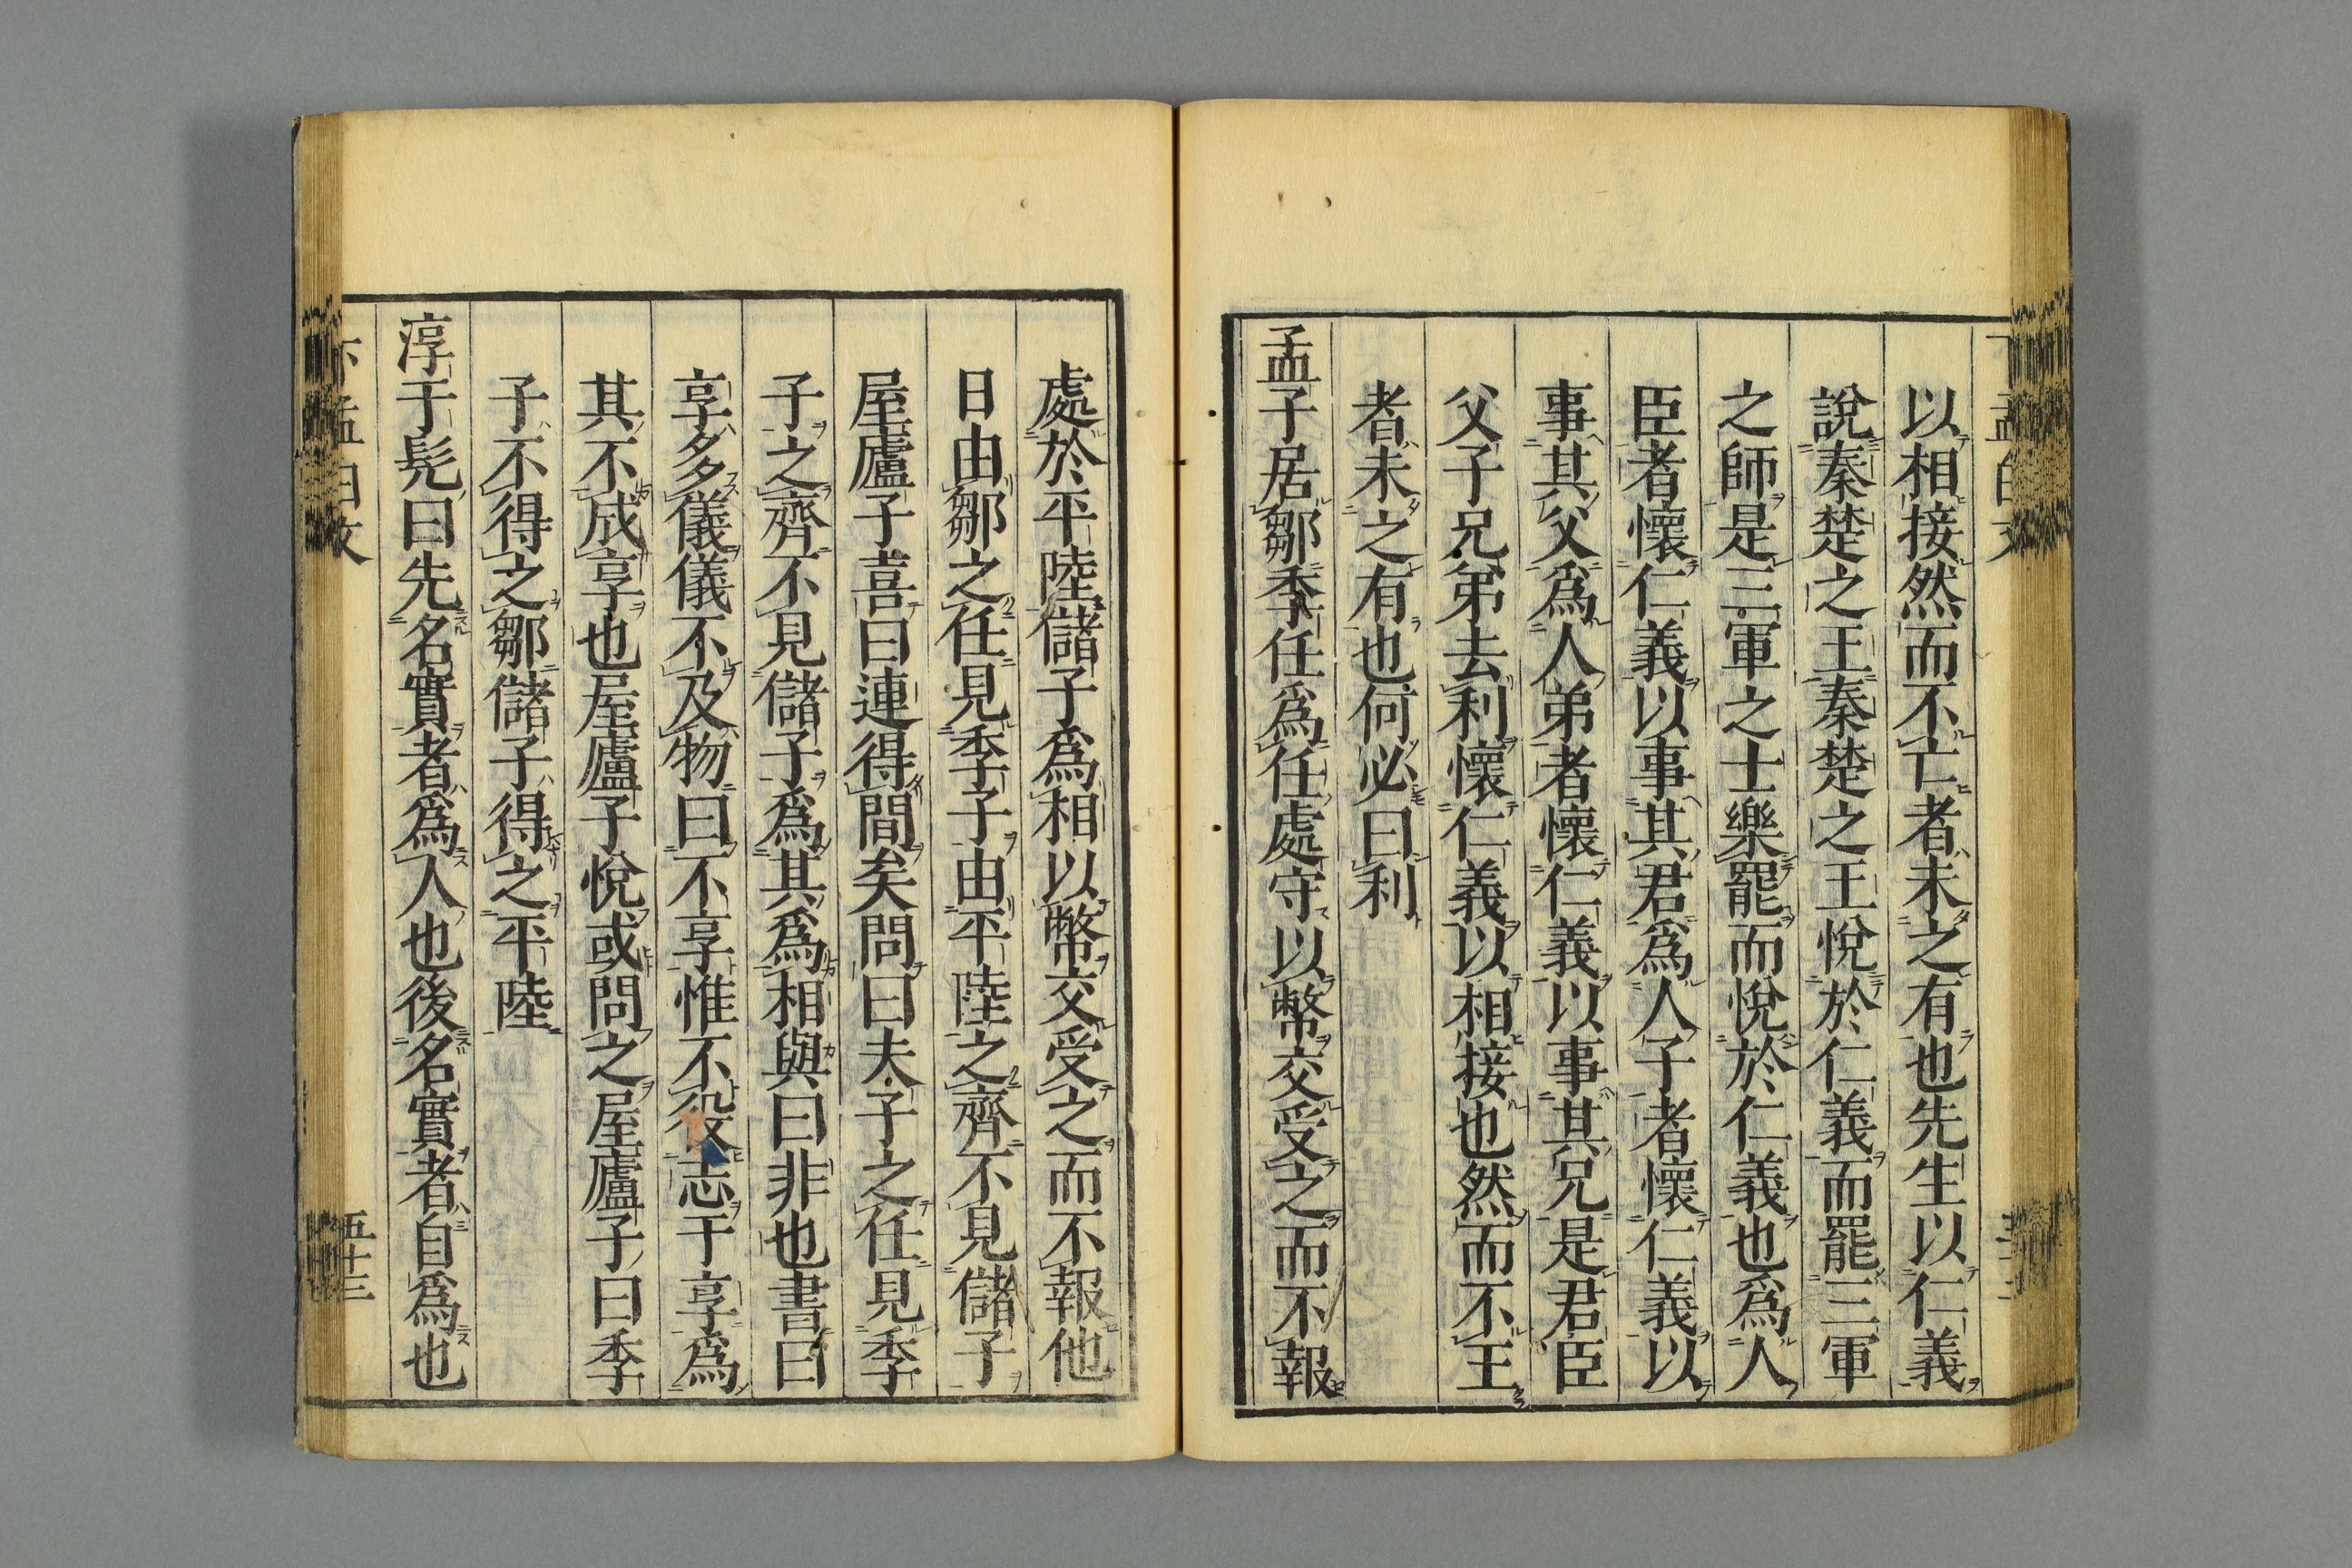 以相接然而不亡者未之有也先生以仁義
說秦楚之王秦楚之王悅於仁義而罷三軍
之師是三軍之士樂罷而悅於仁義也為人
臣者懷仁義以事其君為人子者懷仁義以
事其父為人弟者懷仁義以事其兄是君臣
父子兄弟去利懷仁義以相接也然而不王
者未之有也何必曰利
孟子居鄒季任為任處守以幣交受之而不報
處於平陸儲子為相以幣交受之而不報他
日由鄒之任見季子由平陸之齊不見儲子
屋廬子喜曰連得間矣問曰夫子之任見季
子之齊不見儲子為其為相與曰非也書曰
享多儀儀不及物曰不享惟不役志于享為
其不成享也屋廬子悅或問之屋廬子曰季
子不得之鄒儲子得之平陸
淳于髡曰先名實者為人也後名實者自為也
五十三